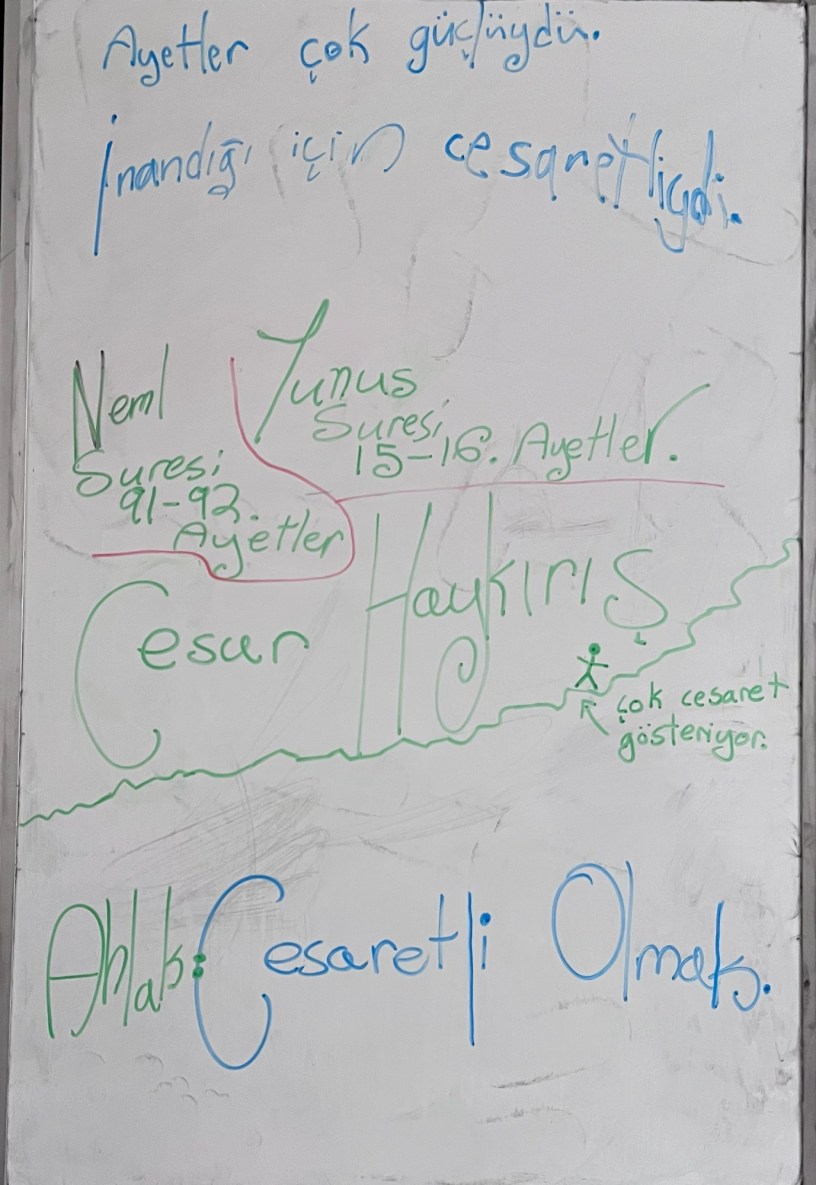 Ayetler çok güçlüydü.
İnandığı için cesaretliydi.
Neml
Suresi
91-92.
Ayetler
Yunus
Suresi
15-16. Ayetler.
Cesur Haykırış
çok cesaret
gösteriyor.
Ahlak: Cesaretli Olmak.